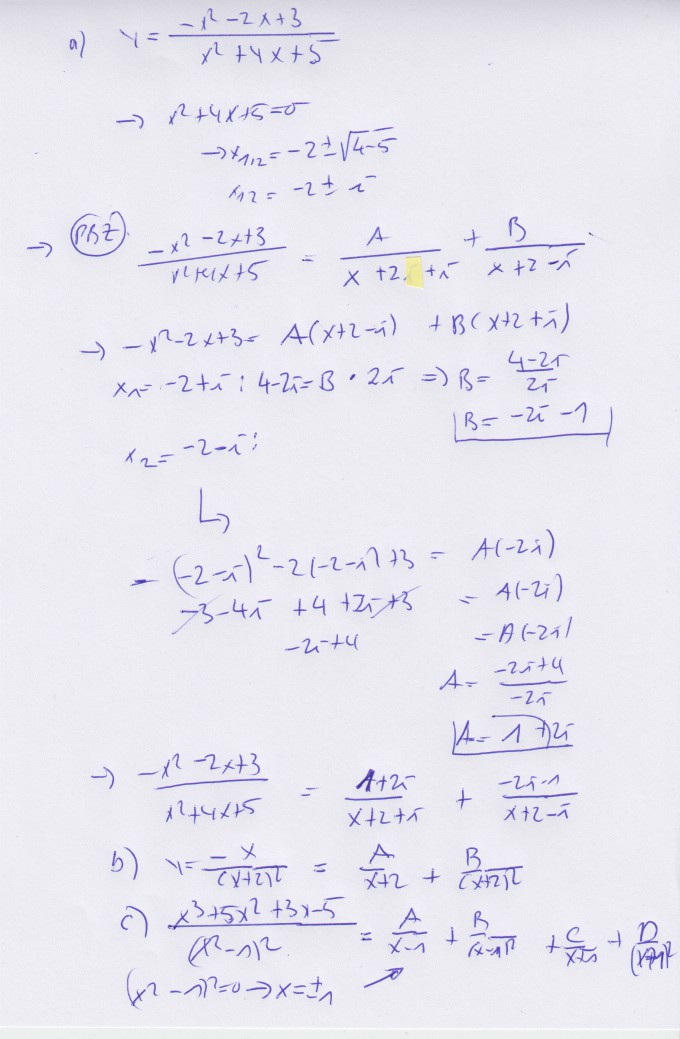 a) y = (-x² - 2x + 3)/(x² + 4x + 5)
→ x² + 4x + 5 = 0
→ x₁,₂ = -2 ± √(4-5)
x₁₂ = -2 ± i
→ PBZ (-x² - 2x + 3)/(x² + 4x + 5) = A/(x + 2 + i) + B/(x + 2 - i)
→ -x² - 2x + 3 = A(x + 2 - i) + B(x + 2 + i)
x₁ = -2 + i : 4 - 2i = B · 2i ⇒ B = (4 - 2i)/2i
B = -2i - 1
x₂ = -2 - i :
↳
- (-2 - i)² - 2(-2 - i) + 3 = A(-2i)
-3 - 4i + 4 + 2i + 3 = A(-2i)
-2i + 4 = A(-2i)
A = (-2i + 4)/(-2i)
A = 1 + 2i
→ (-x² - 2x + 3)/(x² + 4x + 5) = (1 + 2i)/(x + 2 + i) + (-2i - 1)/(x + 2 - i)
b) y = -x/(x+2)² = A/(x+2) + B/(x+2)²
c) (x³ + 5x² + 3x - 5)/(x² - 1)² = A/(x-1) + B/(x-1)² + C/(x+1) + D/(x+1)²
(x² - 1)² = 0 → x = ±1